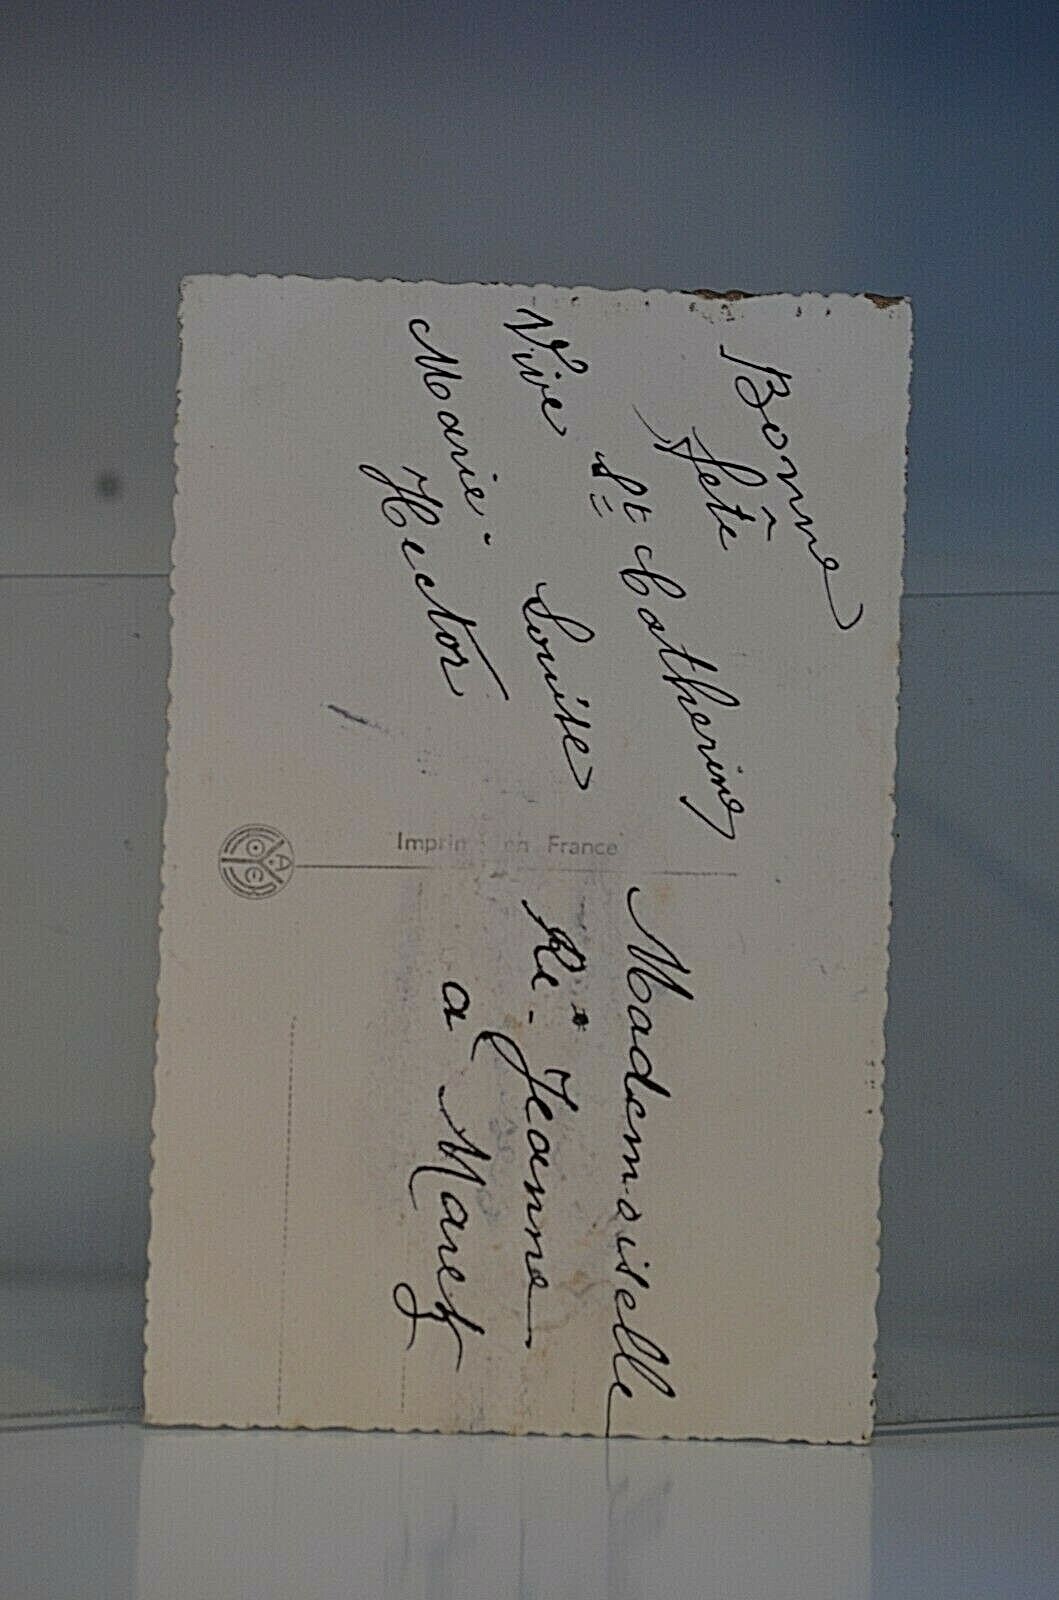 Bonne
fête
Vive St Catherine
Marie-Louise
Hector
Imprimé en France
Mademoiselle
Jeanne
a Marez